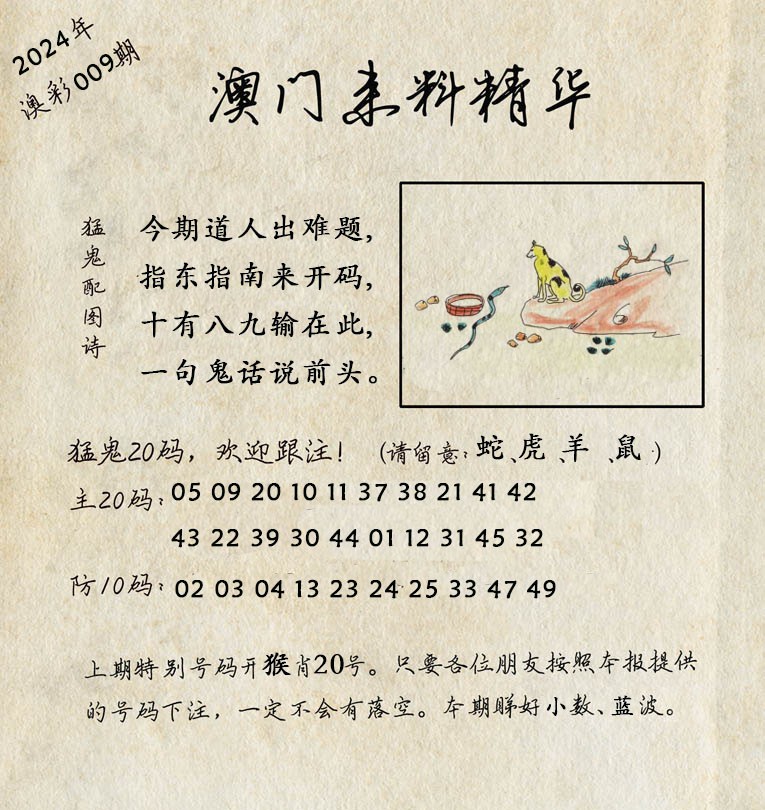 2024年
澳彩009期
澳门来料精华
猛鬼配图诗
今期道人出难题，
指东指南来开码，
十有八九输在此，
一句鬼话说前头。
猛鬼20码，欢迎跟注！（请留意：蛇、虎、羊、鼠）
主20码：05 09 20 10 11 37 38 21 41 42
43 22 39 30 44 01 12 31 45 32
防10码：02 03 04 13 23 24 25 33 47 49
上期特别号码开猴肖20号。只要各位朋友按照本报提供
的号码下注，一定不会有落空。本期睇好小数、蓝波。